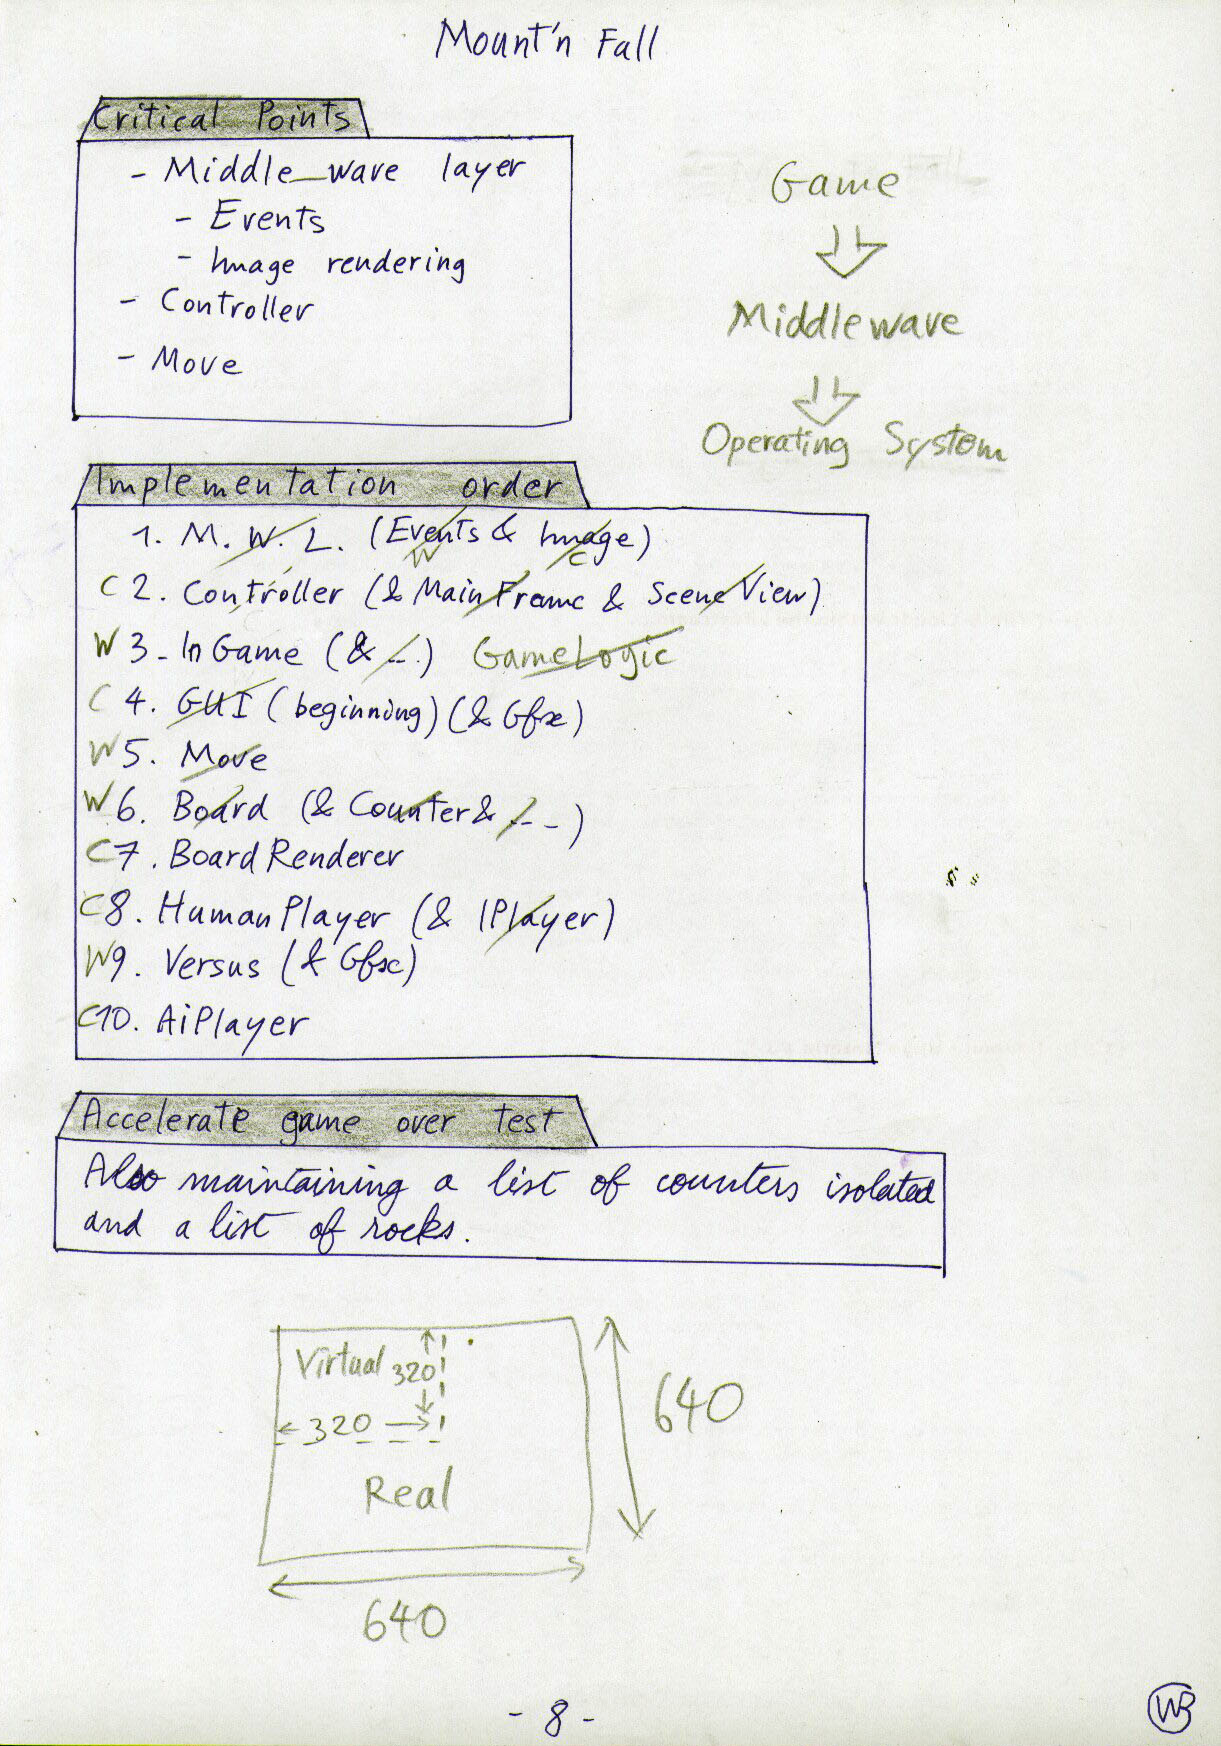 Mount'n Fall
Critical Points
- Middle_wave layer
- Events
- Image rendering
- Controller
- Move
Game
Middlewave
Operating System
Implementation order
1. M. W. L. (Events & Image)
W C
C 2. Controller (& MainFrame & SceneView)
W 3. InGame (& ...) GameLogic
C 4. GUI (beginning) (& Gfx)
W 5. Move
W 6. Board (& Counter & ...)
C 7. BoardRenderer
C 8. HumanPlayer (& IPlayer)
W 9. Versus (& Gfx)
C 10. AiPlayer
Accelerate game over test
Also maintaining a list of counters isolated
and a list of rocks.
Virtual 320
320
Real
640
640
- 8 -
WB